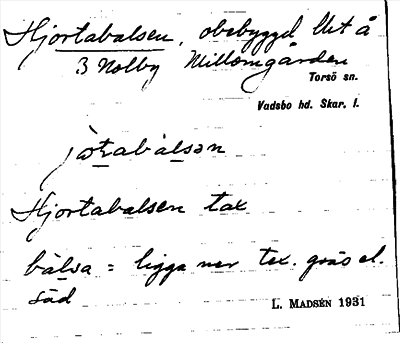 Hjortabalsen, obebyggd lht å
3 Nolby Millomgården
Torsö sn.
Vadsbo hd. Skar. l.
jo̱ṯabàlsən
Hjortabalsen tax
bälsa = ligga ner tex. gräs el.
säd
L. MADSÉN 1931